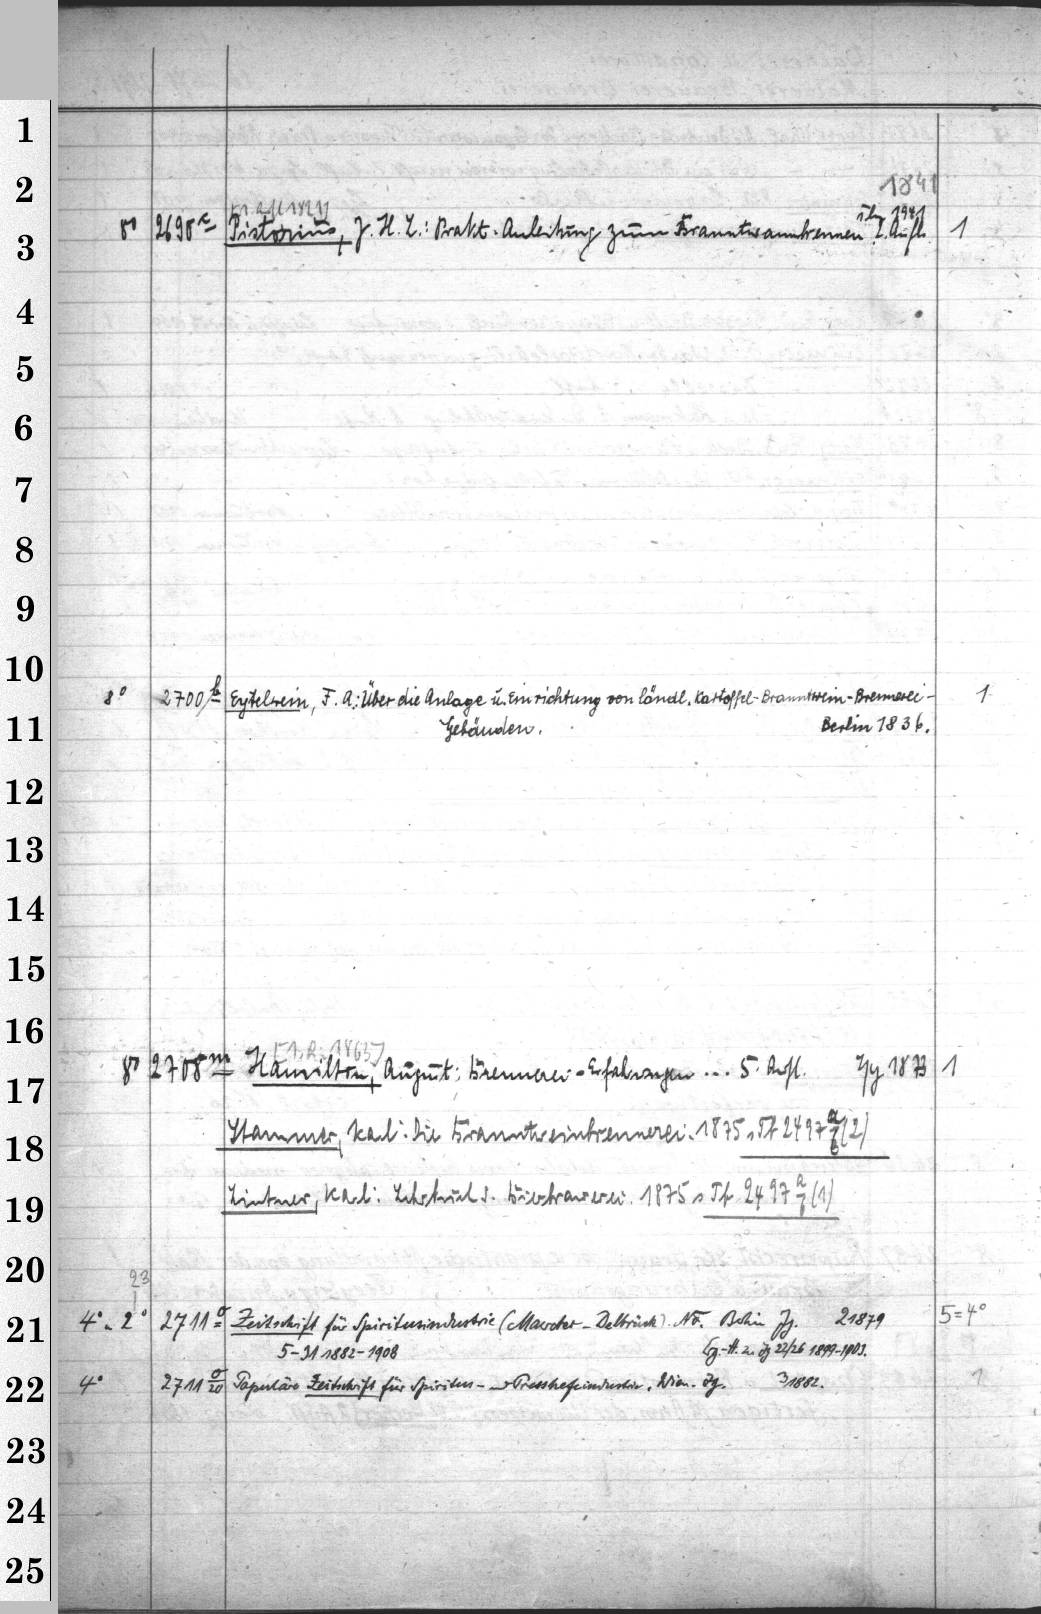 1
2
1841
3
[1. Aufl. 1821]
8° 2698 c Pistorius, J. H. L.: Prakt. Anleitung zum Branntweinbrennen 2. Aufl. 1
4
5
6
7
8
9
10
8° 2700 b Eytelwein, F. A.: Über die Anlage u. Einrichtung von ländl. Kartoffel-Branntwein-Brennerei- 1
11
Gebäuden. Berlin 1836.
12
13
14
15
16
[1. A. 1863]
8° 2708 m Hamilton, August: Brennerei-Erfahrungen ... 5. Aufl. 1873 1
17
Stammer, Karl: Die Branntweinbrennerei. 1875 2497 (2)
18
Lintner, Karl: Lehrbuch d. Bierbrauerei. 1875 2497 (1)
19
20
23
4° u. 2° 2711 σ Zeitschrift für Spiritusindustrie (Maercker-Delbrück). N.F. Berlin Jg. 2 1879 5=4°
21
5-31 1882-1908 Erg.-H. zu Jg 22/26 1899-1903.
22
4° 2711 σ/20 Populäre Zeitschrift für Spiritus- u. Presshefeindustrie. Wien. Jg. 3 1882. 1
23
24
25